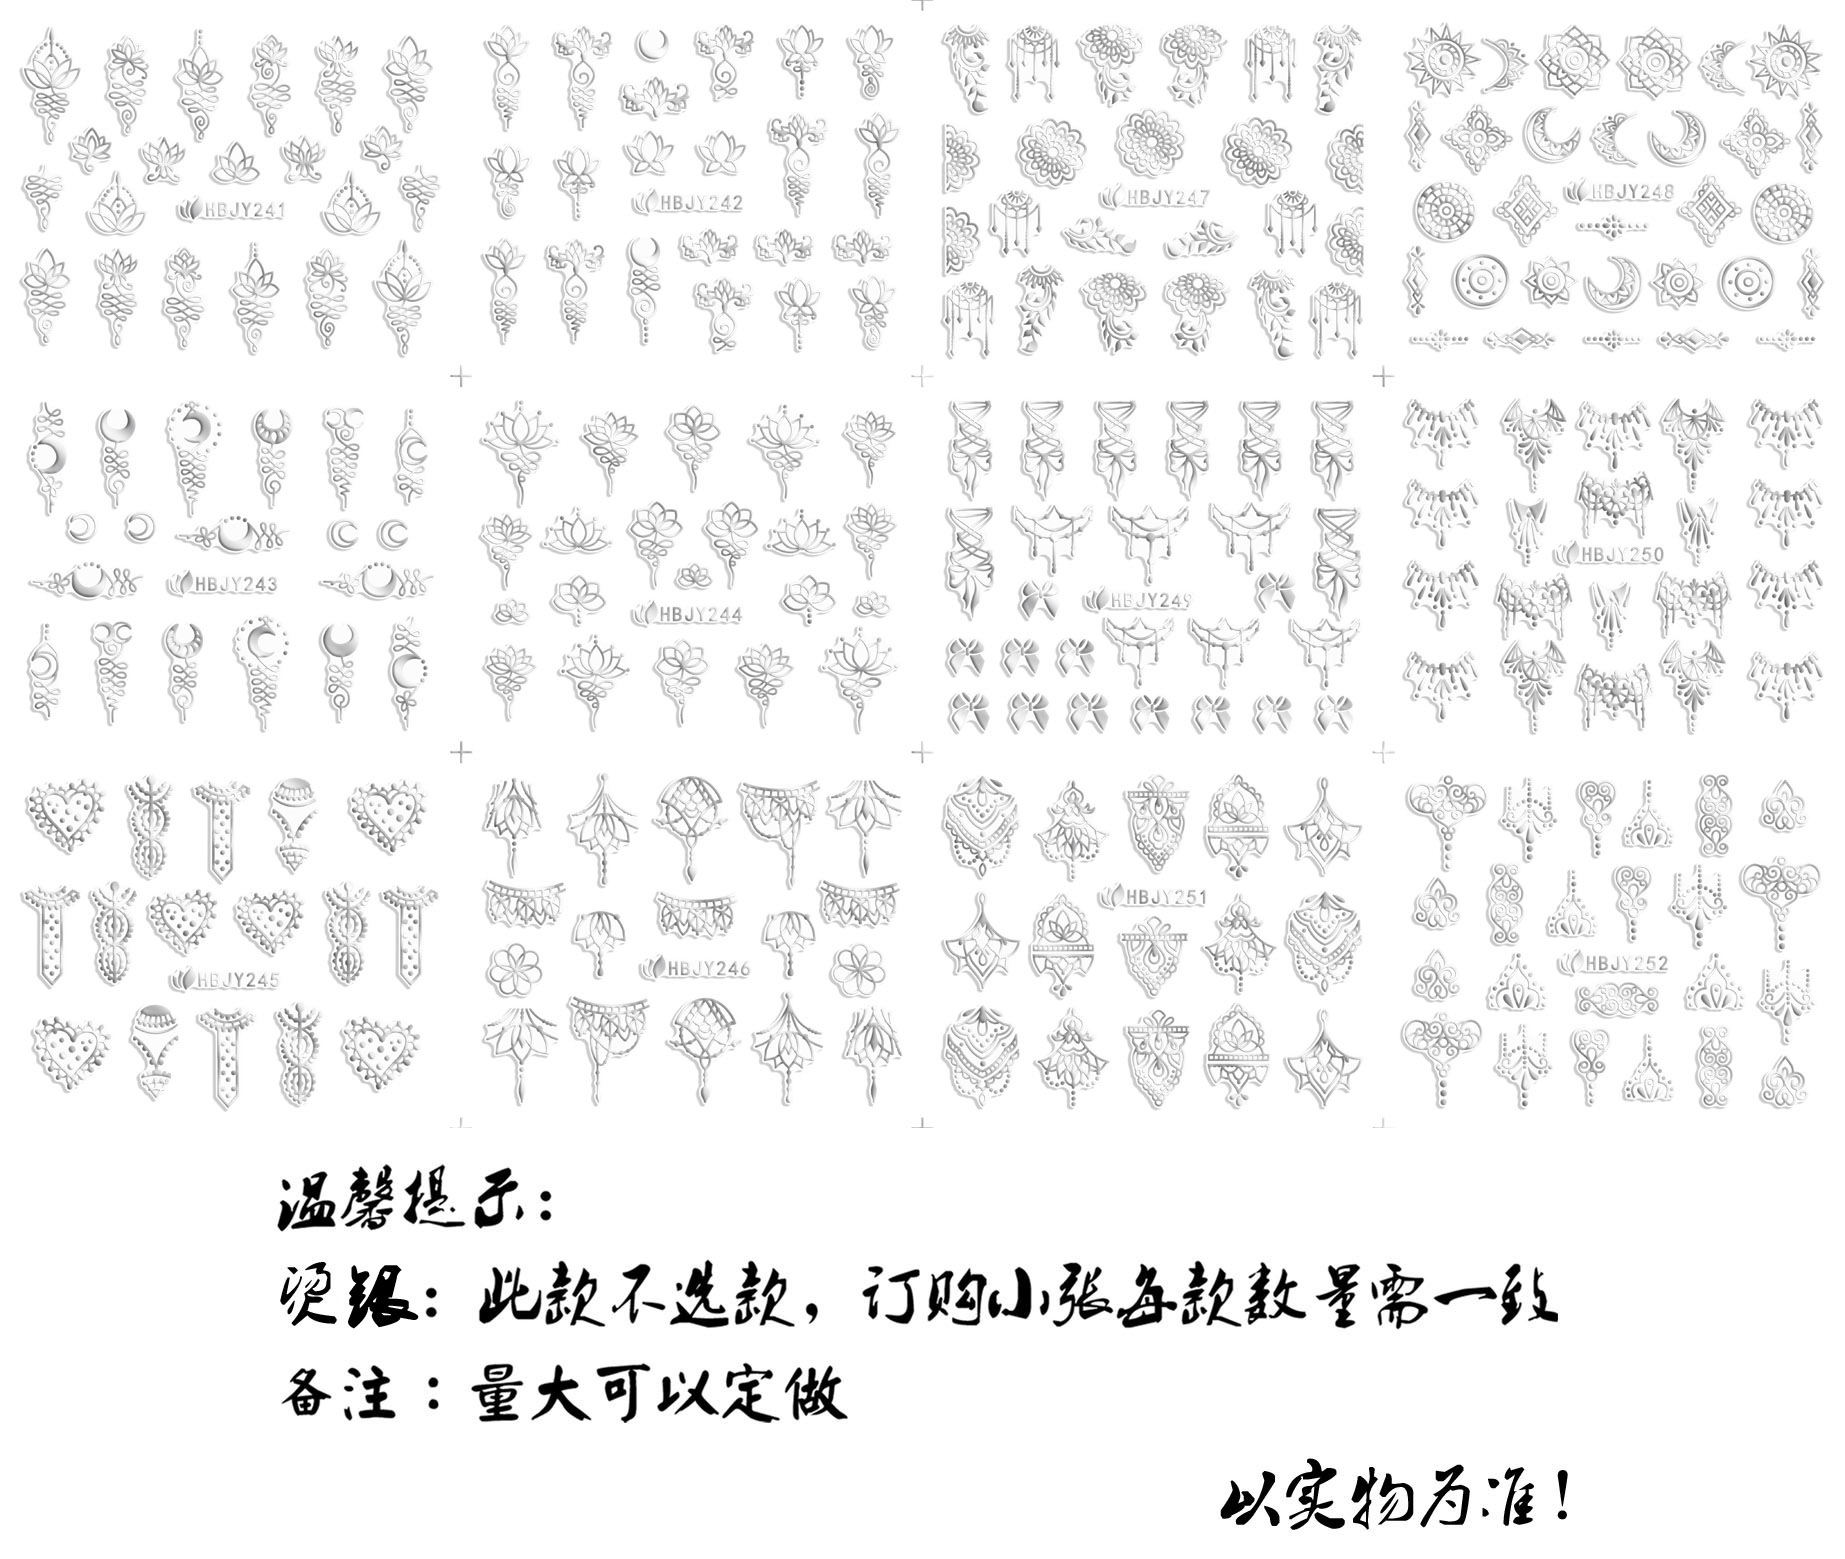 HBJY241
HBJY242
HBJY247
HBJY248
HBJY243
HBJY244
HBJY249
HBJY250
HBJY245
HBJY246
HBJY251
HBJY252
温馨提示：
烫银：此款不选款，订购小张每款数量需一致
备注：量大可以定做
以实物为准！